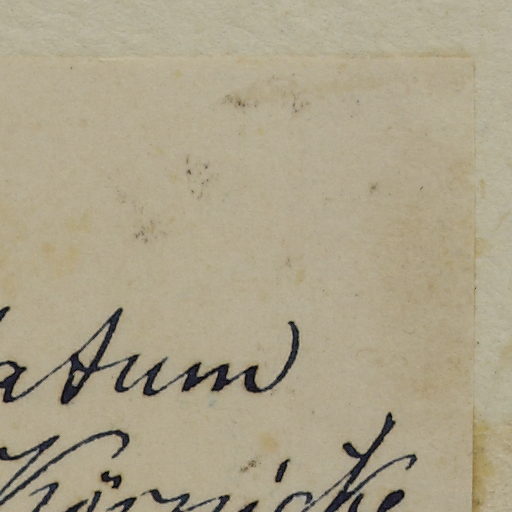 atum)
Körnicke